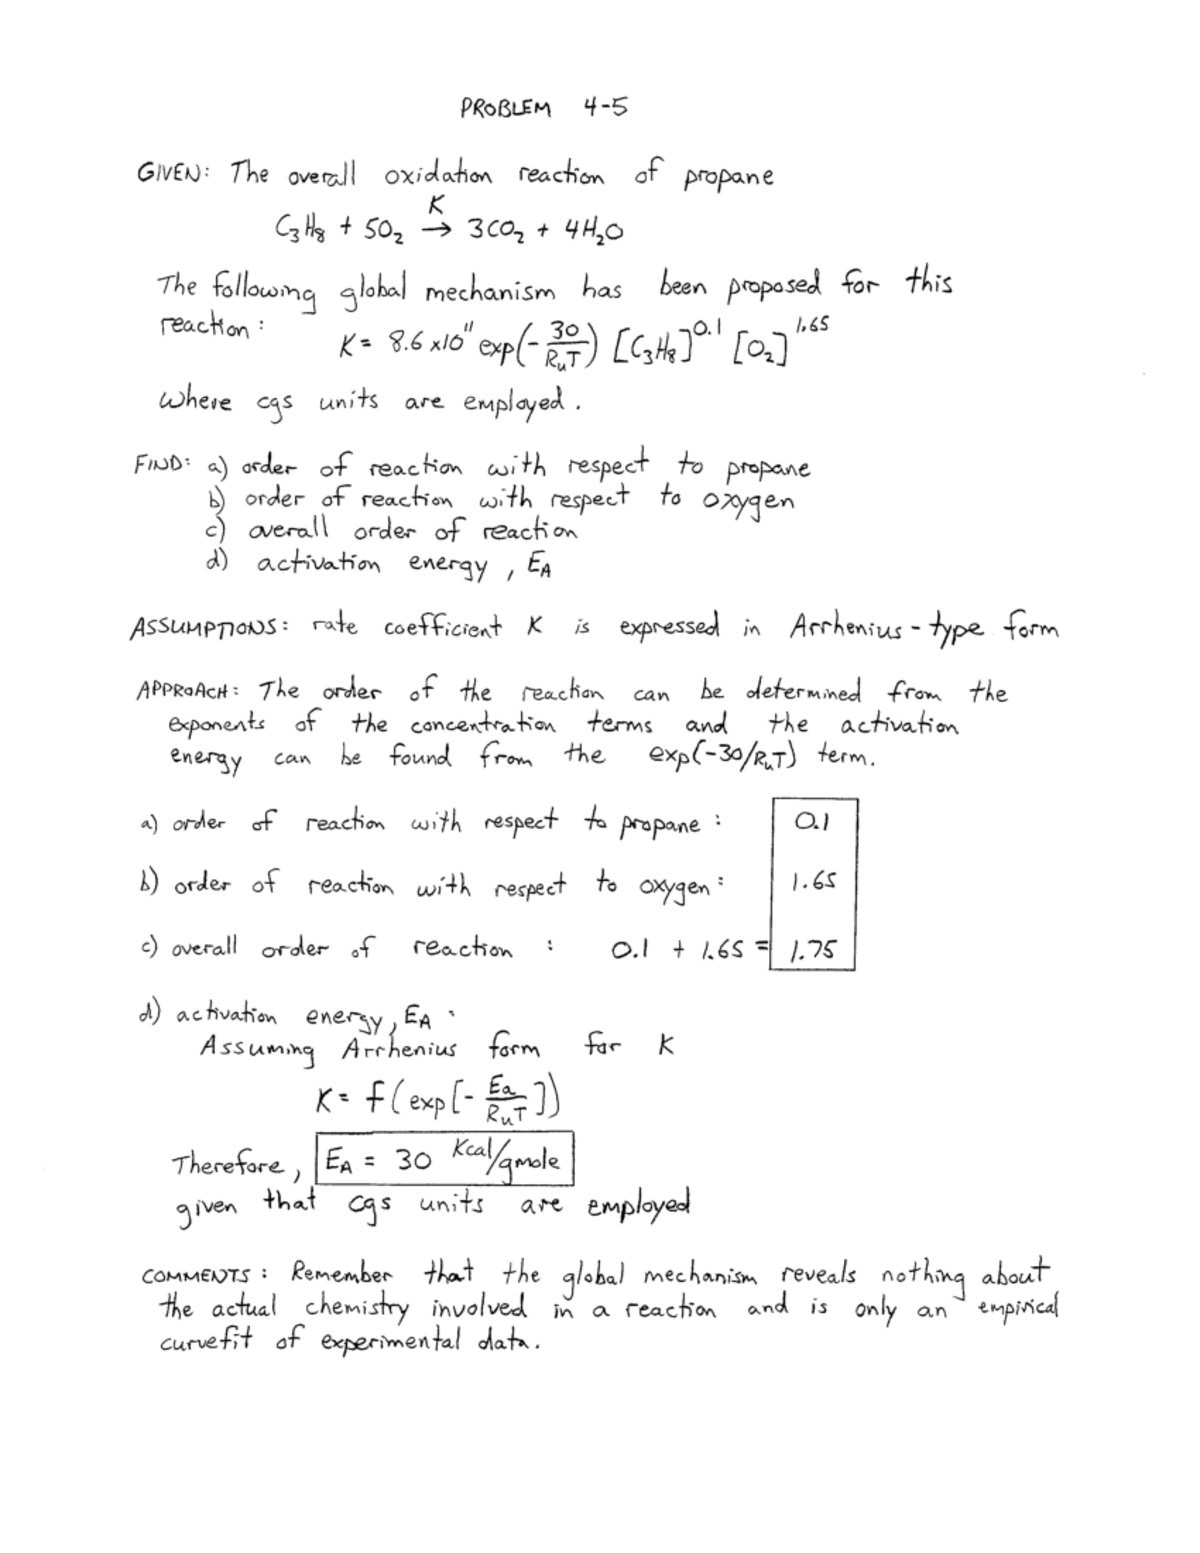 PROBLEM 4-5
GIVEN: The overall oxidation reaction of propane
C3H8 + 5O2 K→ 3CO2 + 4H2O
The following global mechanism has been proposed for this
reaction: K = 8.6 x10^11 exp(-30/RuT) [C3H8]^0.1 [O2]^1.65
where cgs units are employed.
FIND: a) order of reaction with respect to propane
b) order of reaction with respect to oxygen
c) overall order of reaction
d) activation energy, EA
ASSUMPTIONS: rate coefficient K is expressed in Arrhenius-type form
APPROACH: The order of the reaction can be determined from the
exponents of the concentration terms and the activation
energy can be found from the exp(-30/RuT) term.
a) order of reaction with respect to propane: 0.1
b) order of reaction with respect to oxygen: 1.65
c) overall order of reaction: 0.1 + 1.65 = 1.75
d) activation energy, EA:
Assuming Arrhenius form for K
K = f(exp[-Ea/RuT])
Therefore, EA = 30 Kcal/gmole
given that cgs units are employed
COMMENTS: Remember that the global mechanism reveals nothing about
the actual chemistry involved in a reaction and is only an empirical
curvefit of experimental data.